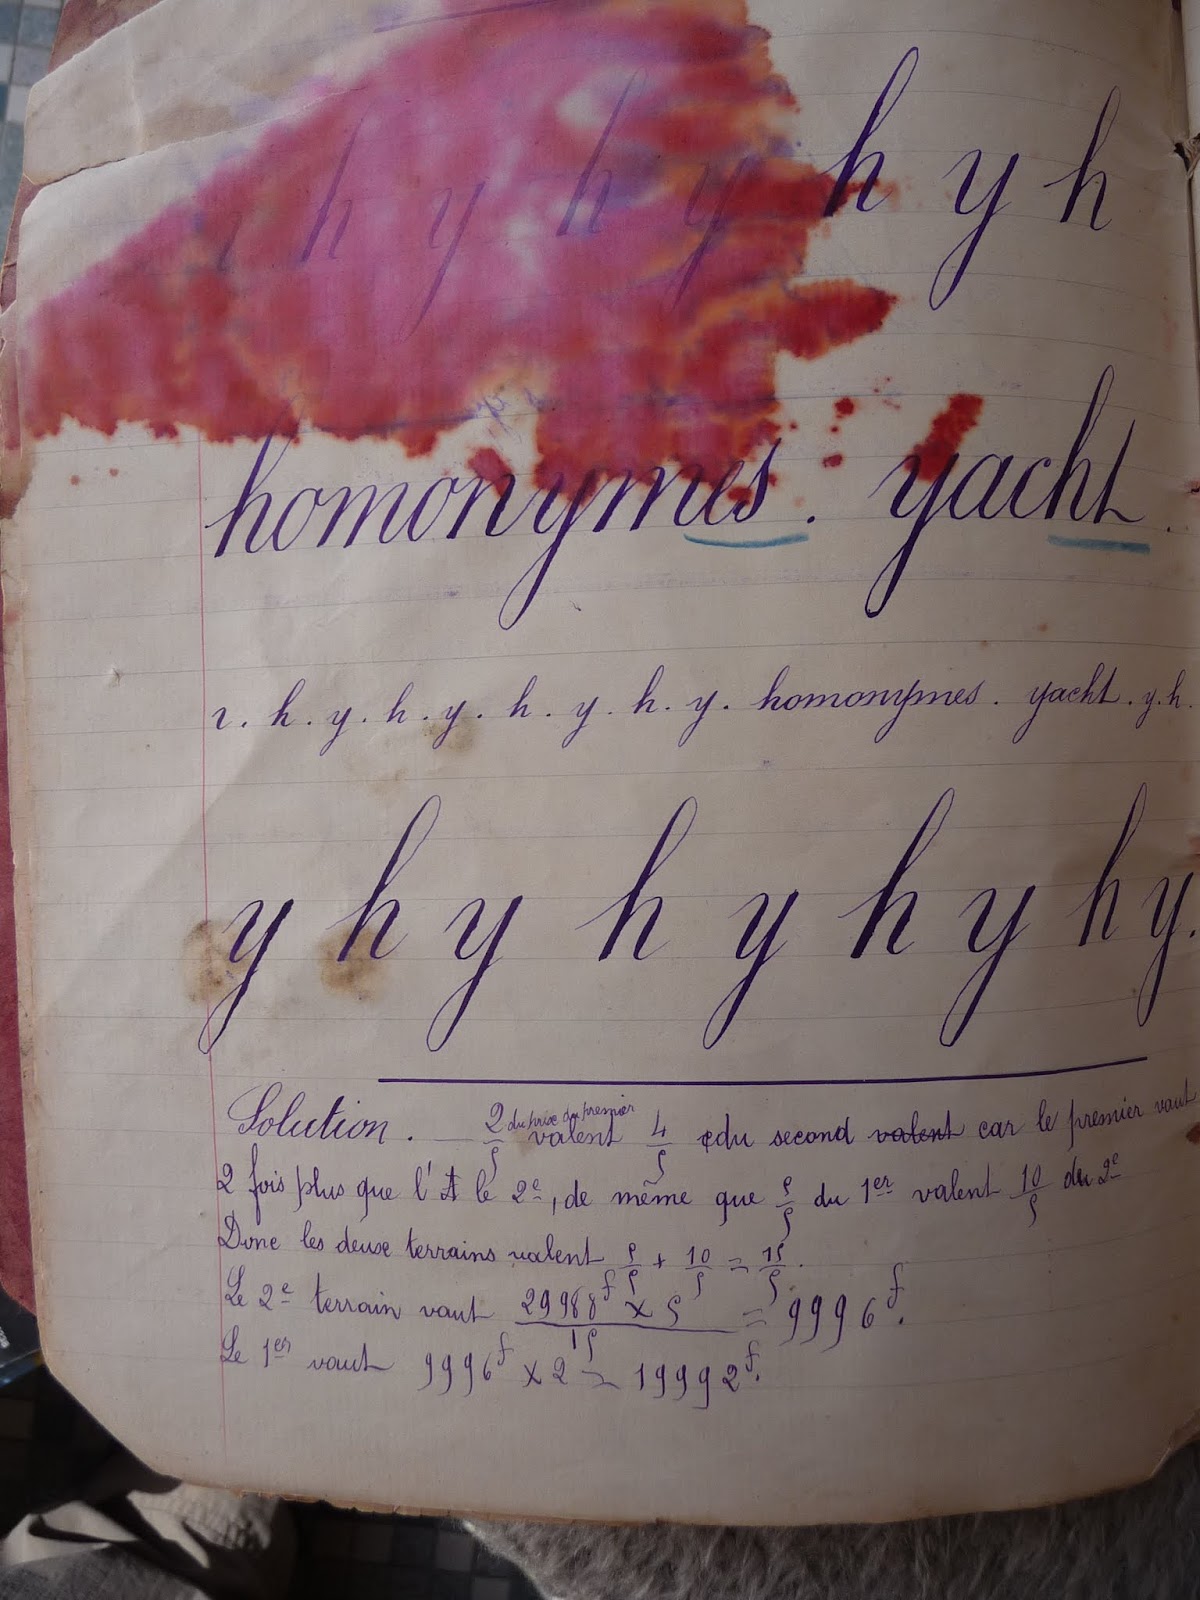 r h y h y h y h
homonymes. yacht.
r. h. y. h. y. h. y. h. y. homonymes. yacht. y. h.
y h y h y h y h y.
Solution. 2/5 du prix du premier valent 4/5 du second valent car le premier vaut
2 fois plus que le 2e, de même que 5/5 du 1er valent 10/5 du 2e
Donc les deux terrains valent 5/5 + 10/5 = 15/5.
Le 2e terrain vaut 29988f × 5 / 15 = 9996f.
Le 1er vaut 9996f × 2 = 19992f.